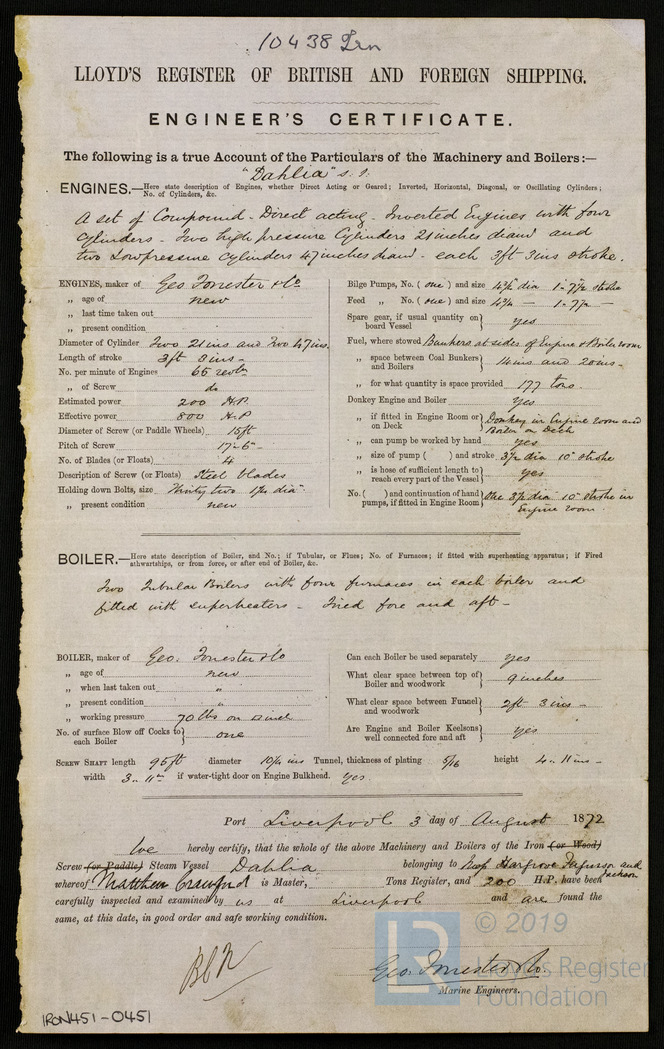 10438 Irn
LLOYD'S REGISTER OF BRITISH AND FOREIGN SHIPPING.
ENGINEER'S CERTIFICATE.
The following is a true Account of the Particulars of the Machinery and Boilers:—
"Dahlia" s.s.
ENGINES.—Here state description of Engines, whether Direct Acting or Geared; Inverted, Horizontal, Diagonal, or Oscillating Cylinders;
No. of Cylinders, &c.
A set of Compound - Direct acting - Inverted Engines with four
Cylinders - Two high pressure Cylinders 21 inches diam and
two Low pressure Cylinders 47 inches diam - each 3ft 3ins stroke.
ENGINES, maker of Geo Forrester & Co
„ age of new
„ last time taken out
„ present condition
Diameter of Cylinder Two 21 ins and Two 47 ins.
Length of stroke 3ft 3ins -
No. per minute of Engines 65 revts
„ of Screw do
Estimated power 200 H.P.
Effective power 800 H.P
Diameter of Screw (or Paddle Wheels) 15ft
Pitch of Screw 17-6-
No. of Blades (or Floats) 4
Description of Screw (or Floats) Steel blades
Holding down Bolts, size Thirty two 1¼ dia
„ present condition new
Bilge Pumps, No. (one) and size 4¾ dia 1-7½ stroke
Feed „ No. (one) and size 4¾ — 1-7½ -
Spare gear, if usual quantity on
board Vessel yes
Fuel, where stowed Bunkers at sides of Engine & Boiler room
„ space between Coal Bunkers
and Boilers 14 ins and 20 ins -
„ for what quantity is space provided 177 tons.
Donkey Engine and Boiler yes
„ if fitted in Engine Room or
on Deck Donkey in Engine room and
Boiler on Deck
„ can pump be worked by hand yes
„ size of pump ( ) and stroke 3½ dia 10" stroke
„ is hose of sufficient length to
reach every part of the Vessel yes
No. ( ) and continuation of hand
pumps, if fitted in Engine Room One 3½ dia 10" stroke in
Engine room.
BOILER.—Here state description of Boiler, and No.; if Tubular, or Flues; No. of Furnaces; if fitted with superheating apparatus; if Fired
athwartships, or from force, or after end of Boiler, &c.
Two Tubular Boilers with four furnaces in each boiler and
fitted with superheaters - Fired fore and aft -
BOILER, maker of Geo. Forrester & Co
„ age of new
„ when last taken out "
„ present condition "
„ working pressure 70 lbs on
No. of surface Blow off Cocks to
each Boiler one
Can each Boiler be used separately yes
What clear space between top of
Boiler and woodwork 9 inches
What clear space between Funnel
and woodwork 2ft 3 ins -
Are Engine and Boiler Keelsons
well connected fore and aft yes
SCREW SHAFT length 95ft diameter 10¼ ins Tunnel, thickness of plating 5/16 height 4.. 11 ins -
width 3.. 11" if water-tight door on Engine Bulkhead. yes.
Port Liverpool 3 day of August 1872
We hereby certify, that the whole of the above Machinery and Boilers of the Iron (or Wood)
Screw (or Paddle) Steam Vessel Dahlia belonging to Hargrove Fergusson and
Jackson
whereof Matthew Crawford is Master, Tons Register, and 200 H.P. have been
carefully inspected and examined by us at Liverpool and are found the
same, at this date, in good order and safe working condition.
Geo. Forrester & Co.
Marine Engineers.
IRON451-0451
© 2019
LR
Lloyd's Register
Foundation